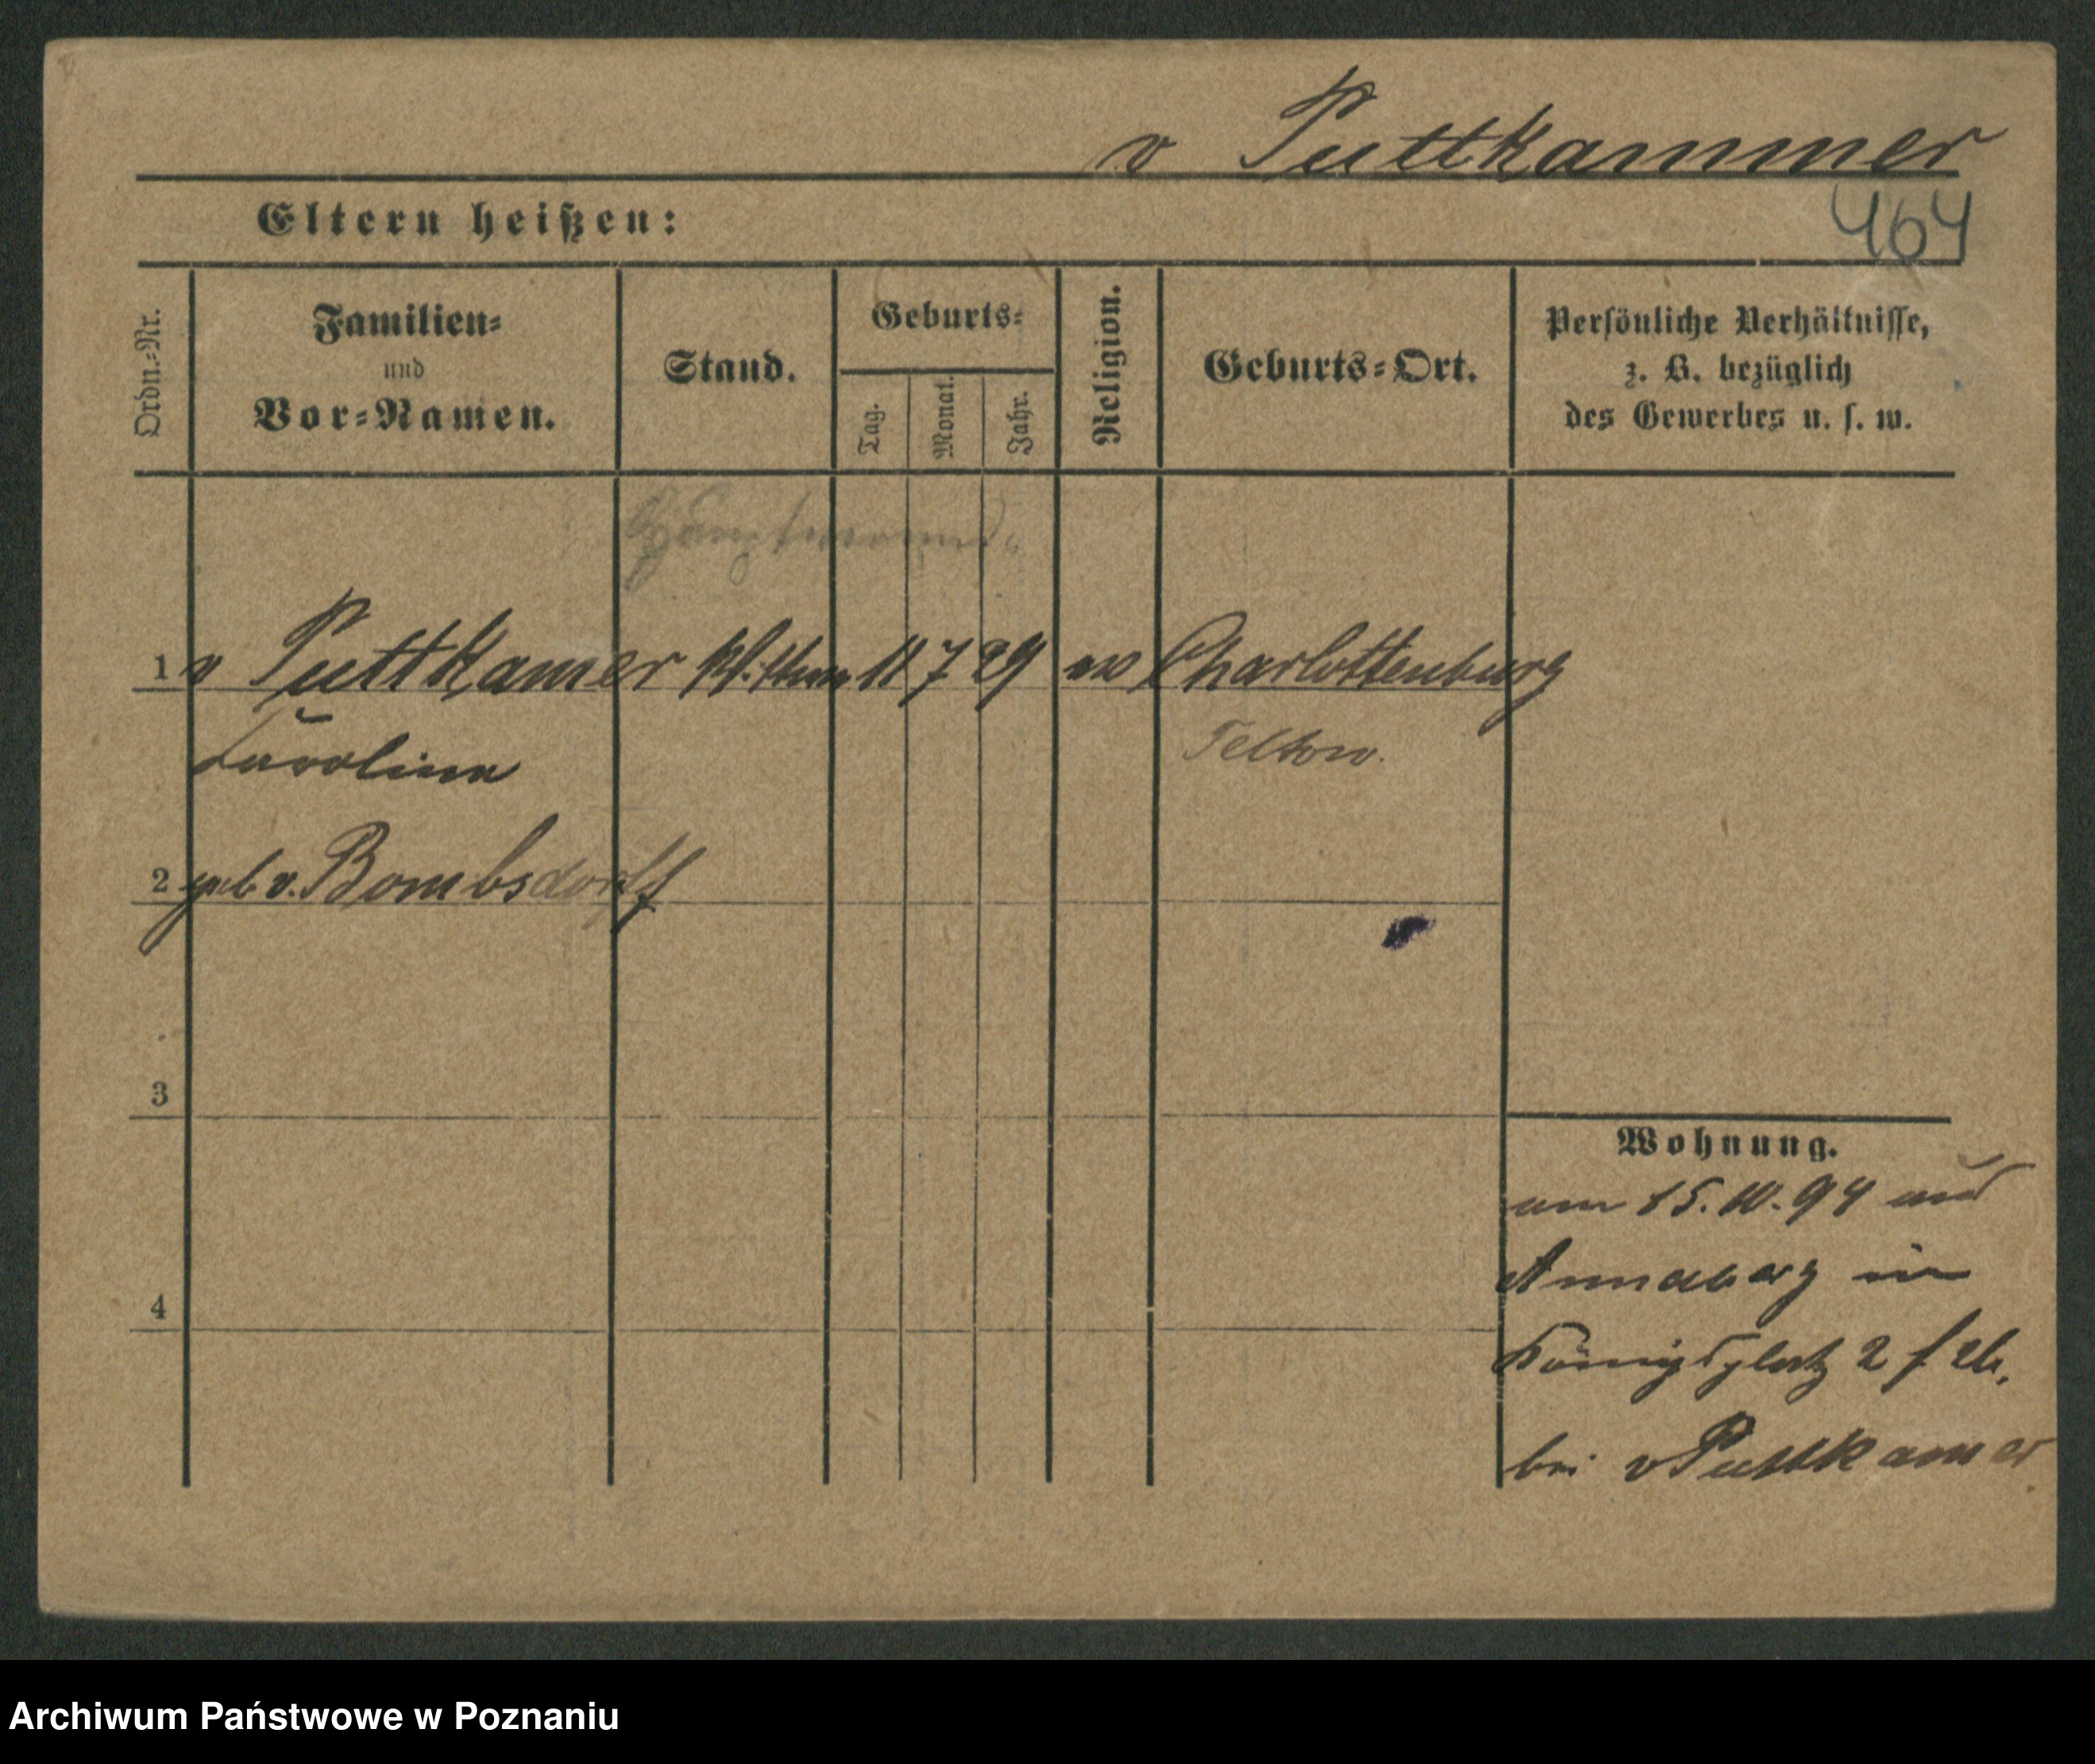 v Puttkammer
464
Eltern heißen:
Ordn.-Nr.
Familien-
und
Vor-Namen.
Stand.
Geburts-
Tag.
Monat.
Jahr.
Religion.
Geburts-Ort.
Persönliche Verhältnisse,
z. B. bezüglich
des Gewerbes u. s. w.
1 v Puttkamer 11 7 29 Charlottenburg
Caroline
Teltow.
2 geb v. Bombsdorff
3
4
Wohnung.
am 15.10.94 aus
Annaburg in
Königsplatz 2
bei v Puttkamer
Archiwum Państwowe w Poznaniu